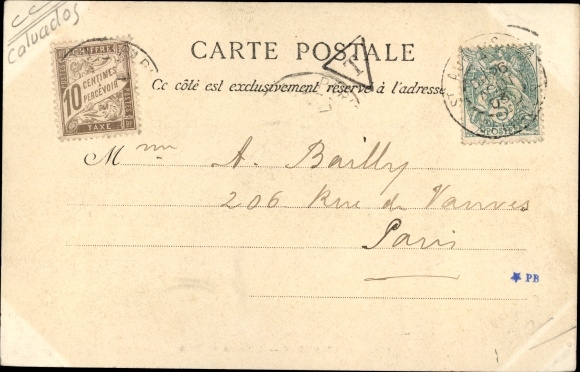 CC
Calvados
CHIFFRE
10 CENTIMES
À
PERCEVOIR
TAXE
CARTE POSTALE
T
Ce côté est exclusivement réservé à l'adresse
5
POSTES
Mme A. Bailly
206 Rue de Vanves
Paris
PB